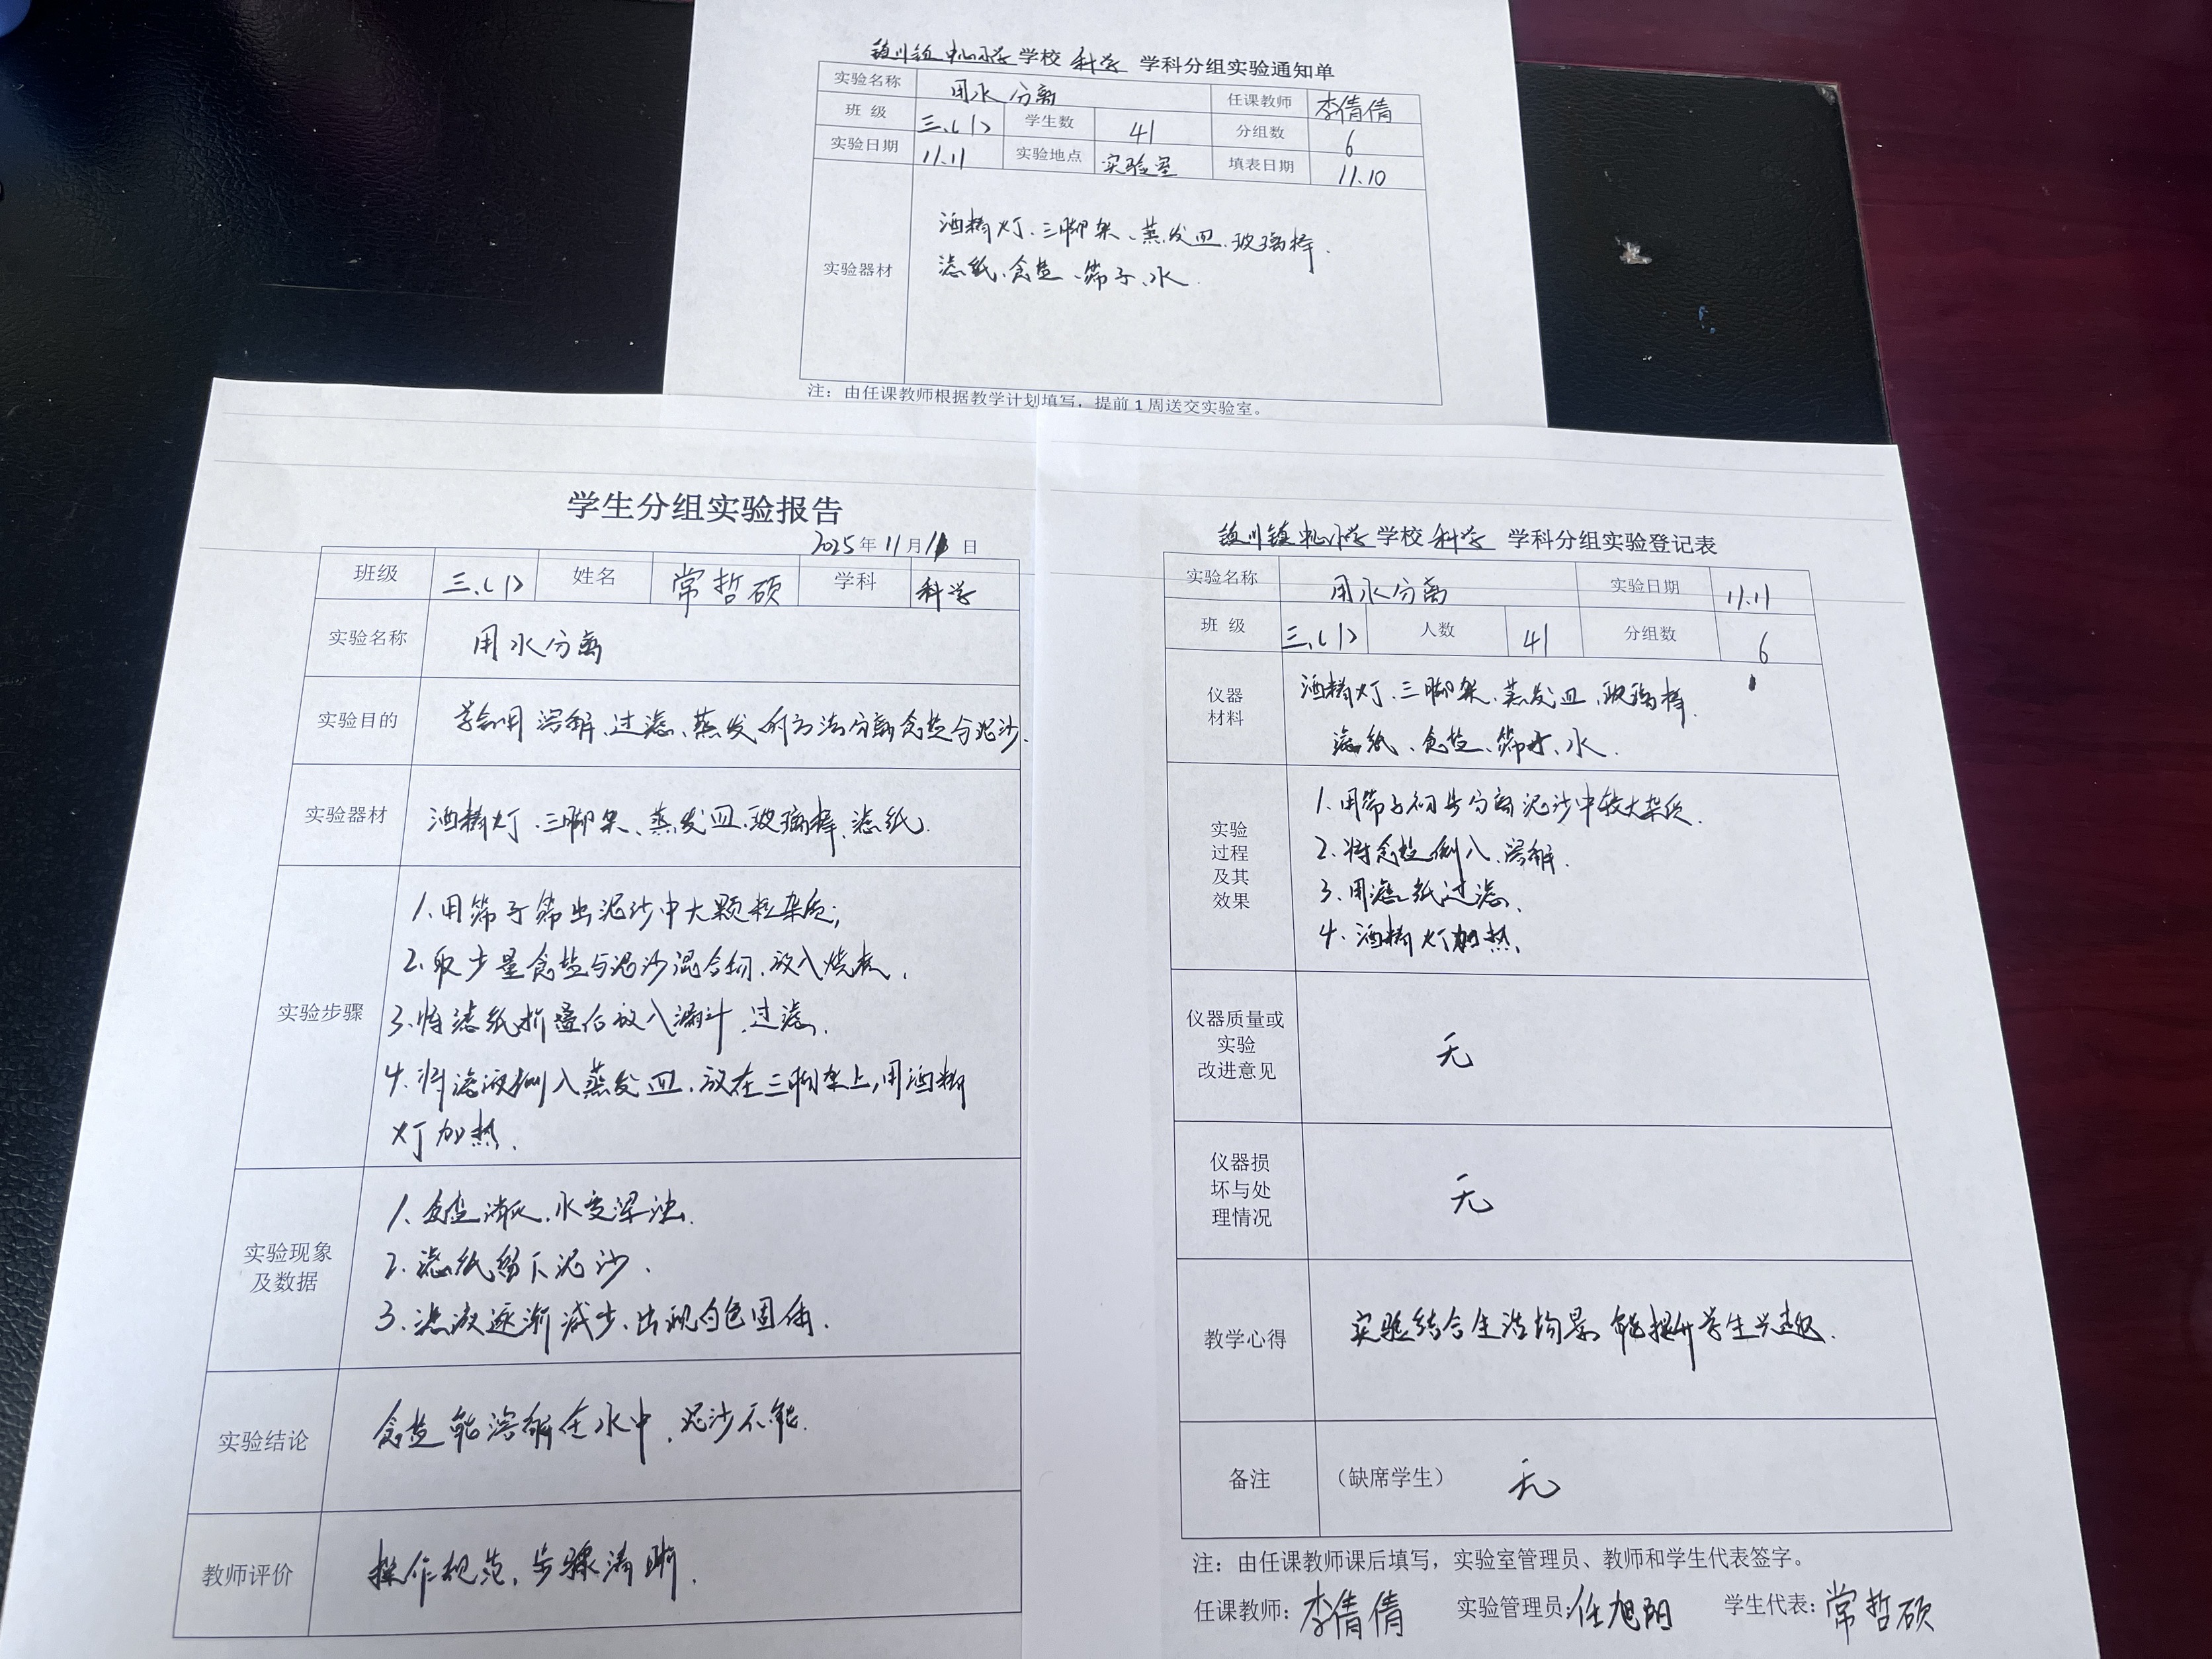 镇川镇中心小学 学校 科学 学科分组实验通知单
实验名称 用水分离 任课教师 李倩倩
班 级 三、(1) 学生数 41 分组数 6
实验日期 11.11 实验地点 实验室 填表日期 11.10
实验器材
酒精灯、三脚架、蒸发皿、玻璃棒、
滤纸、食盐、筛子、水.
注：由任课教师根据教学计划填写，提前1周送交实验室。
学生分组实验报告
2025年11月11日
班级 三、(1) 姓名 常哲硕 学科 科学
实验名称 用水分离
实验目的 学会用溶解、过滤、蒸发的方法分离食盐与泥沙.
实验器材 酒精灯、三脚架、蒸发皿、玻璃棒、滤纸.
实验步骤
1.用筛子筛出泥沙中大颗粒杂质;
2.取少量食盐与泥沙混合物,放入烧杯.
3.将滤纸折叠后放入漏斗,过滤.
4.将滤液倒入蒸发皿,放在三脚架上,用酒精
灯加热.
实验现象
及数据
1.食盐消死,水变浑浊.
2.滤纸留下泥沙.
3.滤液逐渐减少,出现白色固体.
实验结论 食盐能溶解在水中,泥沙不能.
教师评价 操作规范,步骤清晰.
镇川镇中心小学 学校 科学 学科分组实验登记表
实验名称 用水分离 实验日期 11.11
班 级 三、(1) 人数 41 分组数 6
仪器
材料
酒精灯、三脚架、蒸发皿、玻璃棒、
滤纸、食盐、筛子、水.
实验
过程
及其
效果
1.用筛子初步分离泥沙中较大杂质.
2.将食盐倒入,溶解.
3.用滤纸过滤.
4.酒精灯加热.
仪器质量或
实验
改进意见
无
仪器损
坏与处
理情况
无
教学心得 实验结合生活场景,能提升学生兴趣.
备注 （缺席学生） 无
注：由任课教师课后填写，实验室管理员、教师和学生代表签字。
任课教师：李倩倩 实验管理员：任旭阳 学生代表：常哲硕